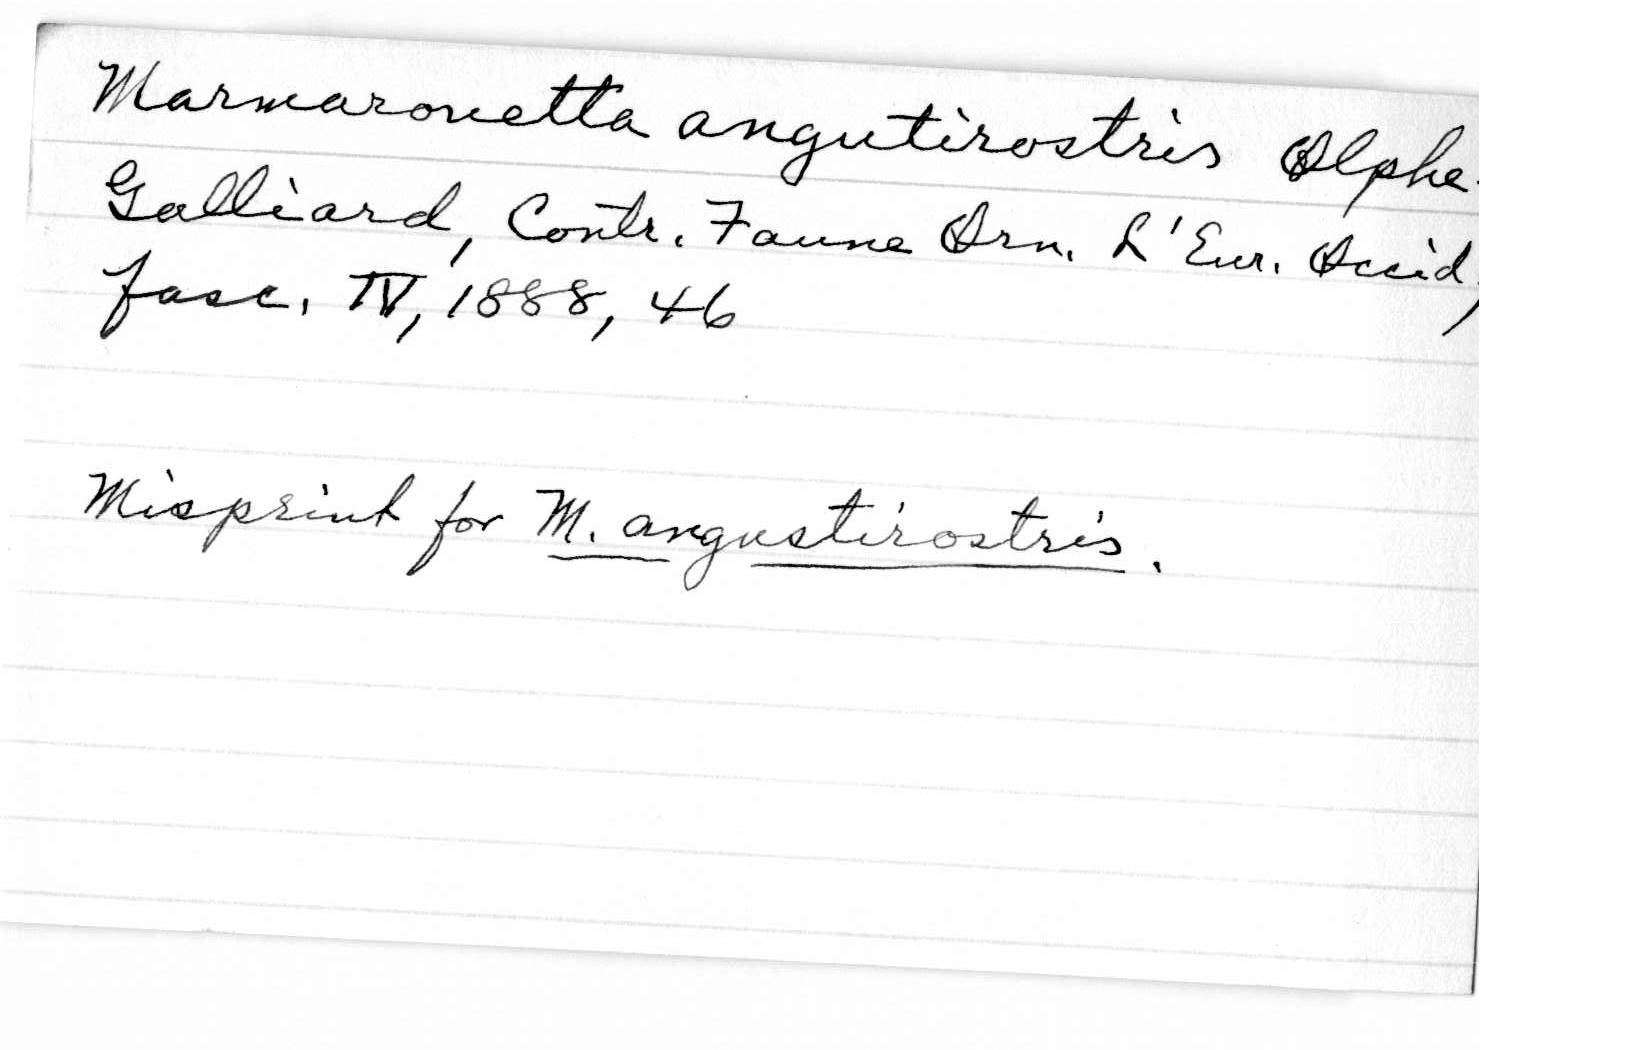 Marmaronetta angutirostris Alphe-
Galliard, Contr. Faune Orn. L'Eur. Occid,
fasc. IV, 1888, 46
Misprint for M. angustirostris.